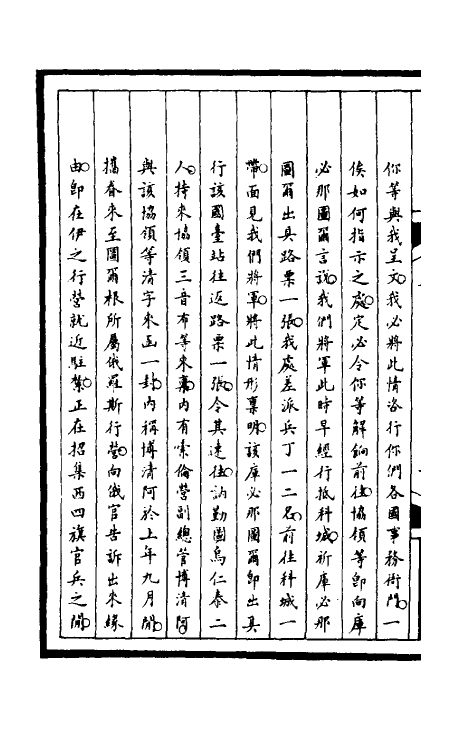 你等與我呈文我必將此情咨行你們各國事務衙門一
俟如何指示之處定必令你等解餉前往協領等即向庫
必那圖爾言說我們將軍此時早經行抵科城祈庫必那
圖爾出具路票一張我處差派兵丁一二名前往科城一
帶面見我們將軍將此情形稟明該庫必那圖爾即出具
行該國臺站往返路票一張令其速往訥勤圖烏仁泰二
人持來協領三音布等來稟內有索倫營副總管博清阿
與該協領等清字來函一封內稱博清阿於上年九月間
攜眷來至圖爾根所屬俄羅斯行營向俄官告訴出來緣
由即在伊之行營就近駐紮正在招集西四旗官兵之間